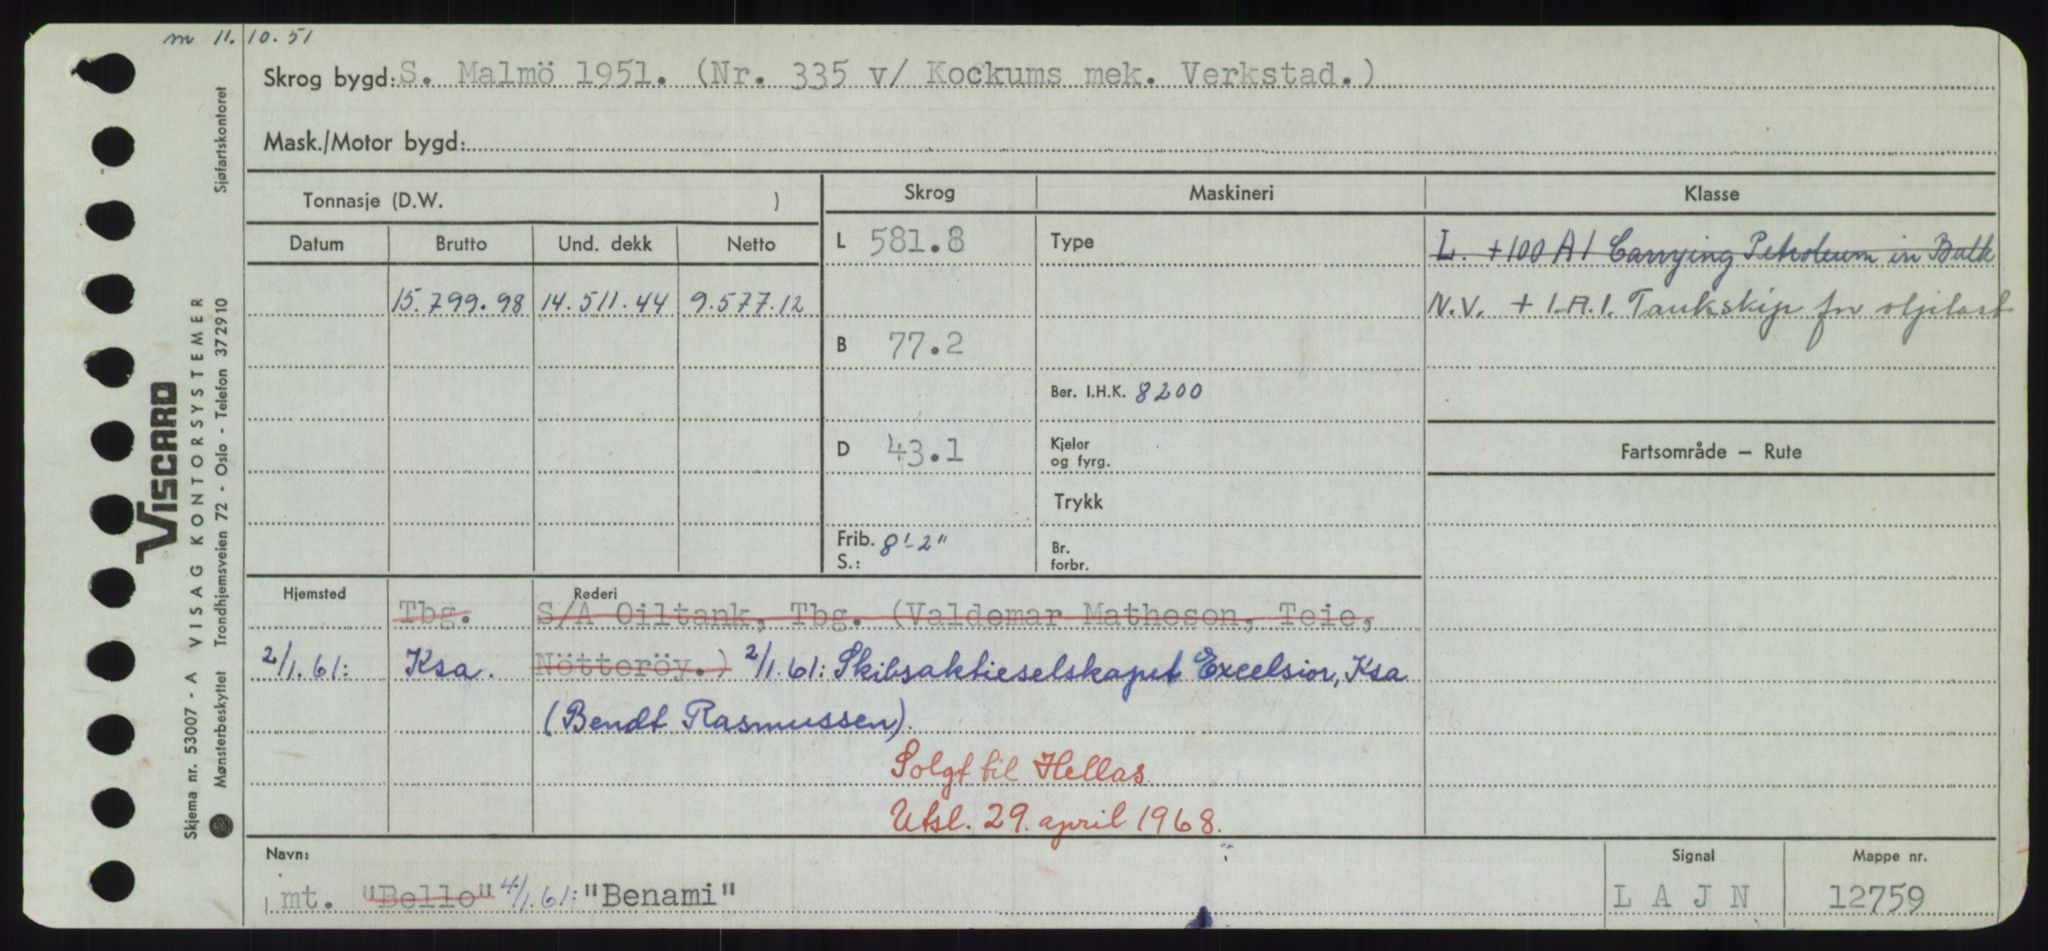 m 11.10.51
Skrog bygd: S. Malmö 1951. (Nr. 335 v/ Kockums mek. Verkstad.)
Mask./Motor bygd:
Tonnasje (D.W. )
Skrog
Maskineri
Klasse
Datum Brutto Und. dekk Netto
L 581.8
Type
L. +100 A1 Carrying Petroleum in Bulk
15.799.98 14.511.44 9.577.12
N.V. + 1.A.1. Tankskip for oljelast
B 77.2
Ber. I.H.K. 8200
D 43.1
Kjeler
og fyrg.
Fartsområde — Rute
Trykk
Frib. 8'-2"
S.:
Br.
forbr.
Hjemsted Rederi
Tbg. S/A Oiltank, Tbg. (Valdemar Matheson, Teie,
2/1.61: Ksa. Nötteröy.) 2/1.61: Skibsaktieselskapet Excelsior, Ksa
(Bendt Rasmussen).
Solgt til Hellas.
Utsl. 29. april 1968.
Navn: Signal Mappe nr.
mt. "Bello" 4/1.61: "Benami" LAJN 12759
Skjema nr. 53007 - A VISAG KONTORSYSTEMER
VISCARD
Mønsterbeskyttet Trondhjemsveien 72 - Oslo - Telefon 372910 Sjøfartskontoret